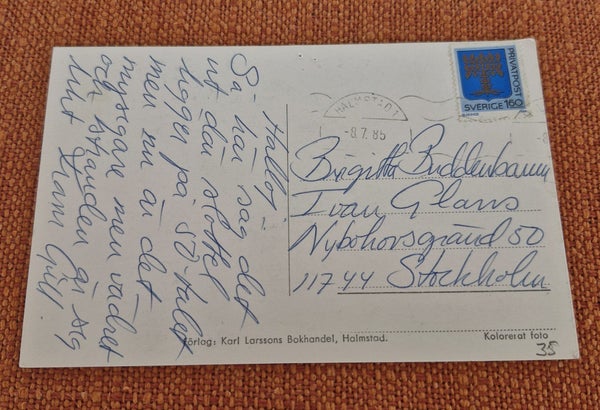 Halloj!
Så här såg det
ut där slottet
ligger på 50-talet
men nu är det
mysigare men vädret
och stranden är sig
likt Kram Gull
HALMSTAD 1
-8.7.85
PRIVATPOST
SVERIGE 160
Birgitta Buddenbaum
Ivan Glans
Nybohovsgränd 50
11744 Stockholm
Förlag: Karl Larssons Bokhandel, Halmstad.
Kolorerat foto
35